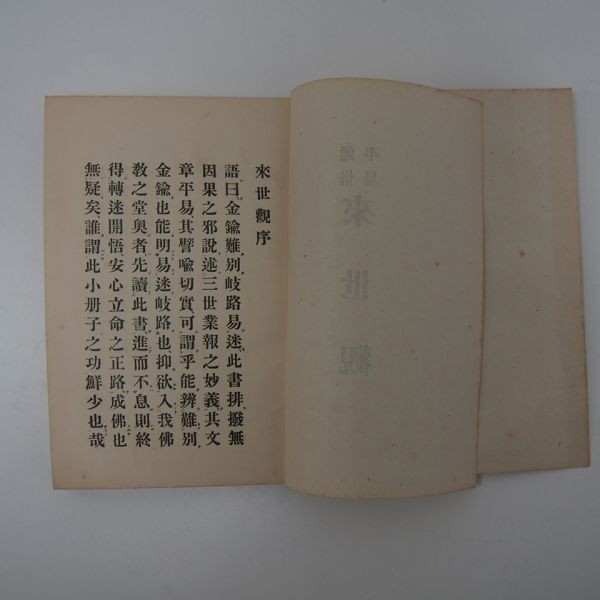 來世觀序
語曰金鍮難別岐路易迷此書排撥無
因果之邪說述三世業報之妙義其文
章平易其譬喩切實可謂乎能辨難別
金鍮也能明易迷岐路也抑欲入我佛
敎之堂奧者先讀此書進而不息則終
得轉迷開悟安心立命之正路成佛也
無疑矣誰謂此小册子之功鮮少也哉
平易
通俗
來世觀